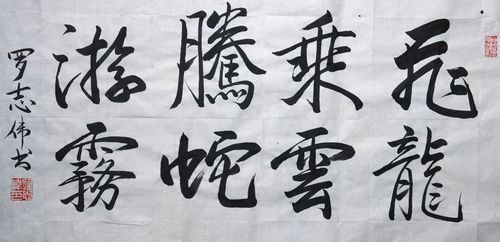 飞龍
乘雲
騰蛇
游霧
罗志伟书